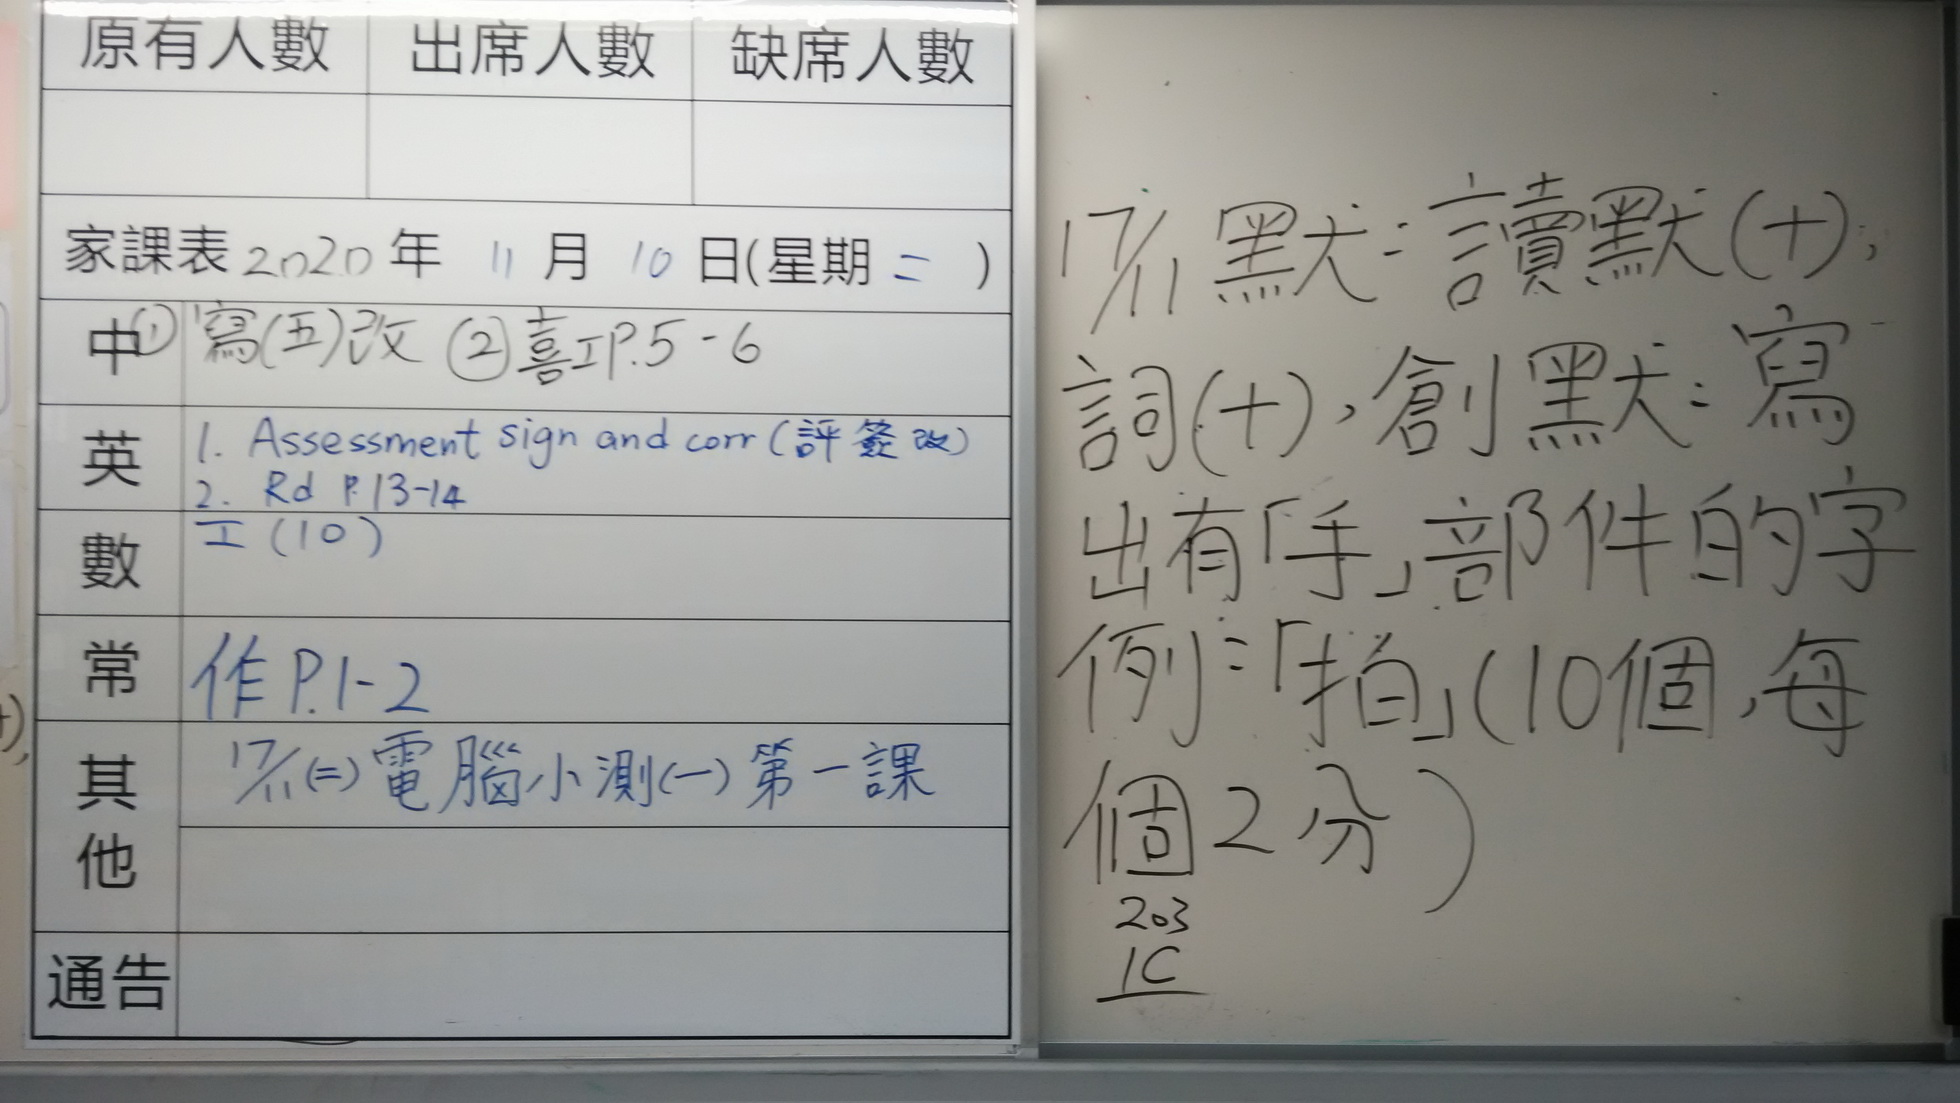 原有人數 出席人數 缺席人數
家課表2020年 11月 10日(星期二)
中 ①寫(五)改 ②喜工P.5-6
英 1. Assessment sign and corr (評簽改)
2. Rd P.13-14
數 工(10)
常 作P.1-2
其他 17/11(二)電腦小測(一)第一課
通告
17/11 默:讀默(十),
詞(十),創默:寫
出有「手」部件的字
例:「拍」(10個,每
個2分)
203
1C